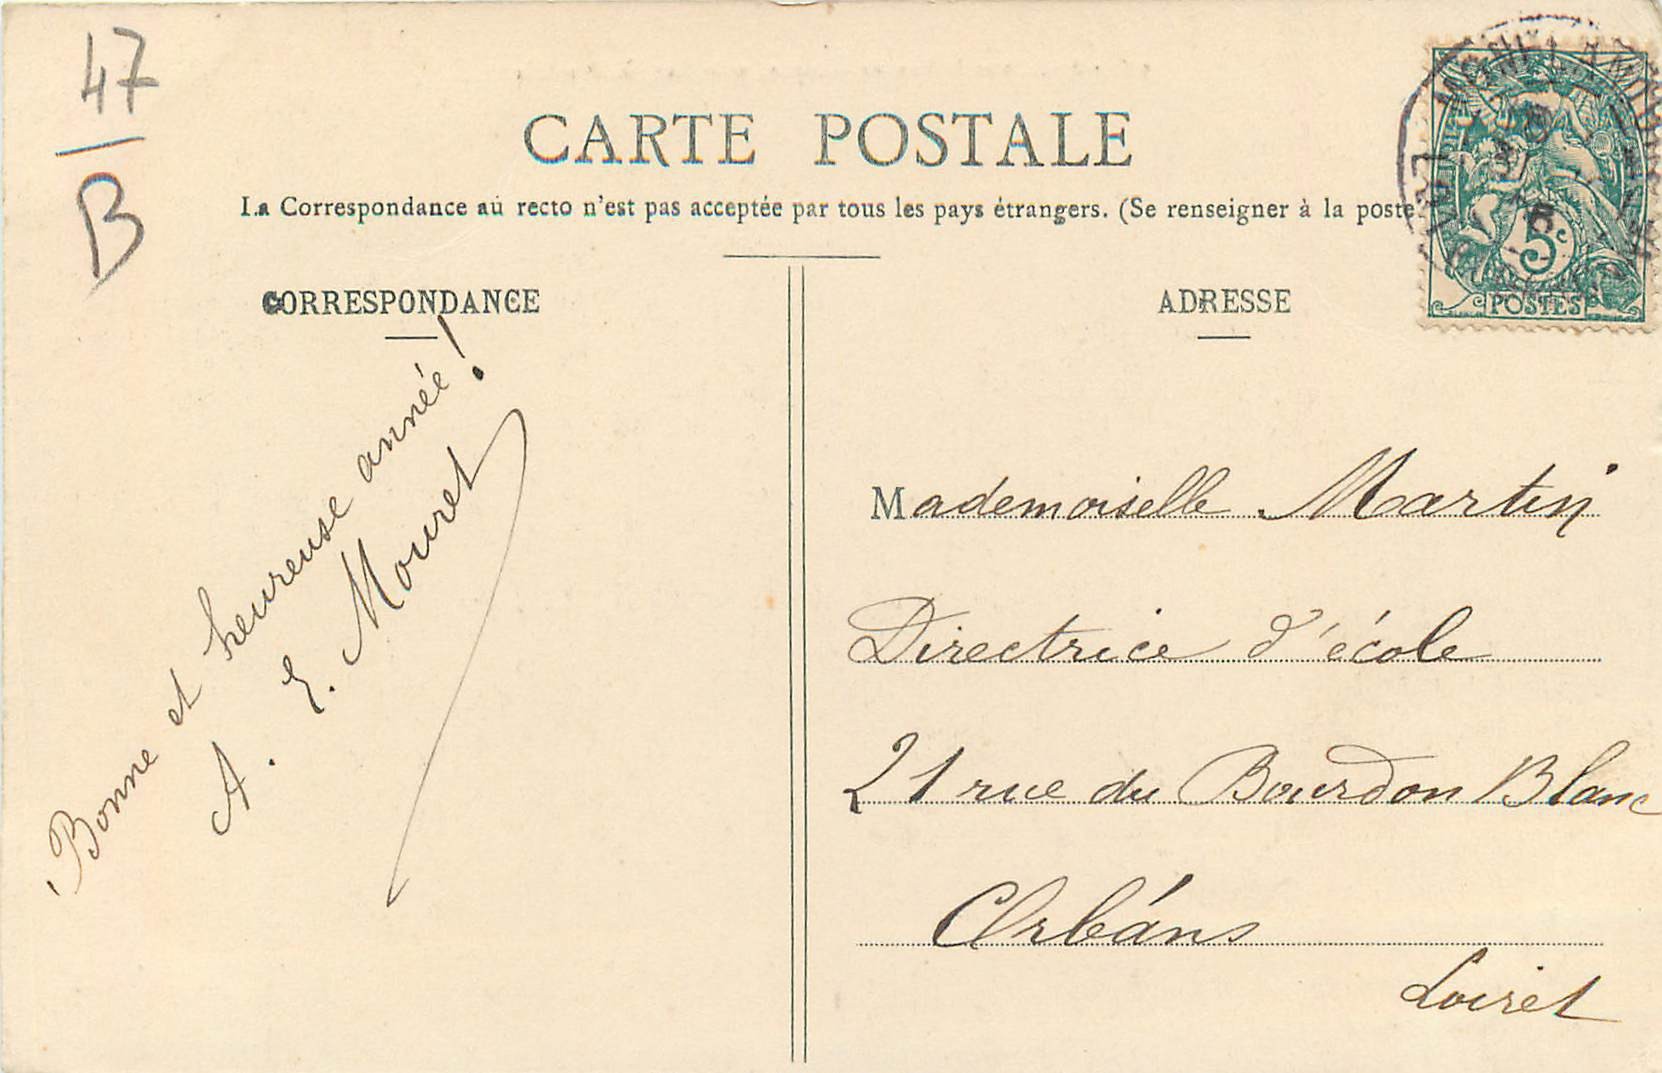 47
B
CARTE POSTALE
La Correspondance au recto n'est pas acceptée par tous les pays étrangers. (Se renseigner à la poste
CORRESPONDANCE
ADRESSE
5c
POSTES
Bonne et heureuse année!
A. E. Mouret
Mademoiselle Martin
Directrice d'école
21 rue du Bourdon Blanc
Orléans
Loiret